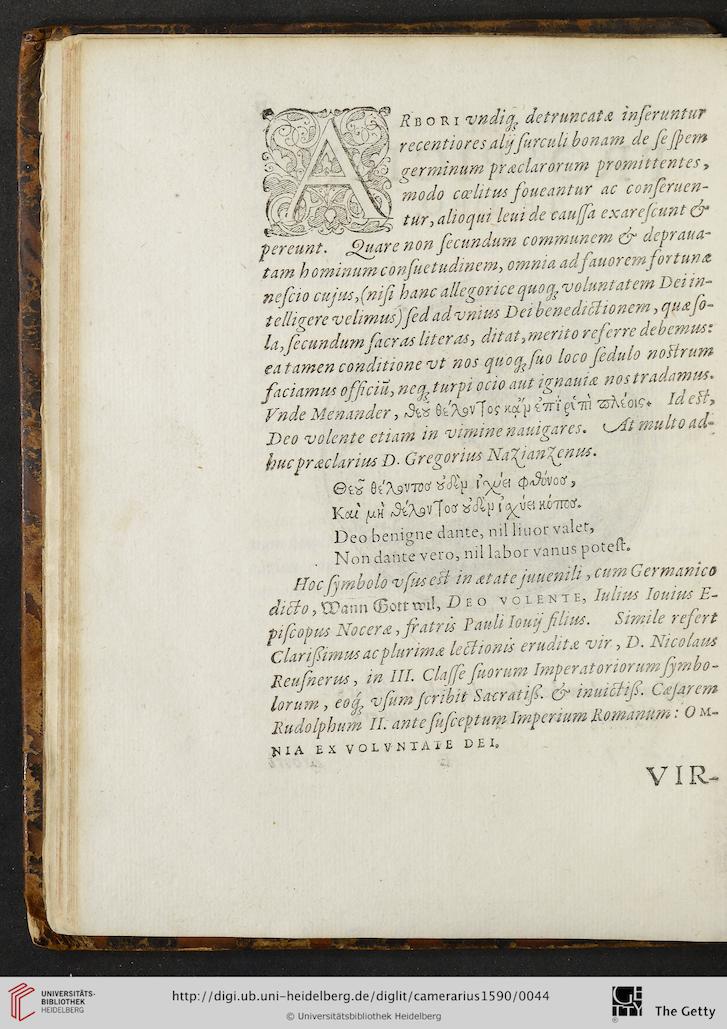 ARBORI vndiq; detruncatæ inſeruntur
recentiores alij ſurculi bonam de ſe ſpem
germinum præclarorum promittentes,
modo cœlitus foueantur ac conſeruen-
tur, alioqui leui de cauſſa exareſcunt &
pereunt. Quare non ſecundum communem & depraua-
tam hominum conſuetudinem, omnia ad fauorem fortunæ
neſcio cujus, (niſi hanc allegorice quoq; voluntatem Dei in-
telligere velimus) ſed ad vnius Dei benedictionem, quæ ſo-
la, ſecundum ſacras literas, ditat, merito referre debemus:
ea tamen conditione vt nos quoq; ſuo loco ſedulo noſtrum
faciamus officiū, neq; turpi ocio aut ignauiæ nos tradamus.
Vnde Menander, Θεȣ θέλοντος κἂν ἐπὶ ῥιπὶ πλέοις. Id eſt,
Deo volente etiam in vimine nauigares. At multo ad-
huc præclarius D. Gregorius Nazianzenus.
Θεȣ͂ θέλοντος ȣ̓δὲν ἰχύει φθόνος,
Καὶ μὴ θέλοντος ȣ̓δὲν ἰχύει κόπος.
Deo benigne dante, nil liuor valet,
Non dante vero, nil labor vanus poteſt.
Hoc ſymbolo vſus eſt in ætate juuenili, cum Germanico
dicto, Wann Gott wil, DEO VOLENTE, Iulius Iouius E-
piſcopus Noceræ, fratris Pauli Iouij filius. Simile refert
Clariſſimus ac plurimæ lectionis eruditæ vir, D. Nicolaus
Reuſnerus, in III. Claſſe ſuorum Imperatoriorum ſymbo-
lorum, eoq; vſum ſcribit Sacratiſſ. & inuictiſſ. Cæſarem
Rudolphum II. ante ſuſceptum Imperium Romanum: OM-
NIA EX VOLVNTATE DEI.
VIR-
UNIVERSITÄTS-
BIBLIOTHEK
HEIDELBERG
http://digi.ub.uni-heidelberg.de/diglit/camerarius1590/0044
© Universitätsbibliothek Heidelberg
The Getty